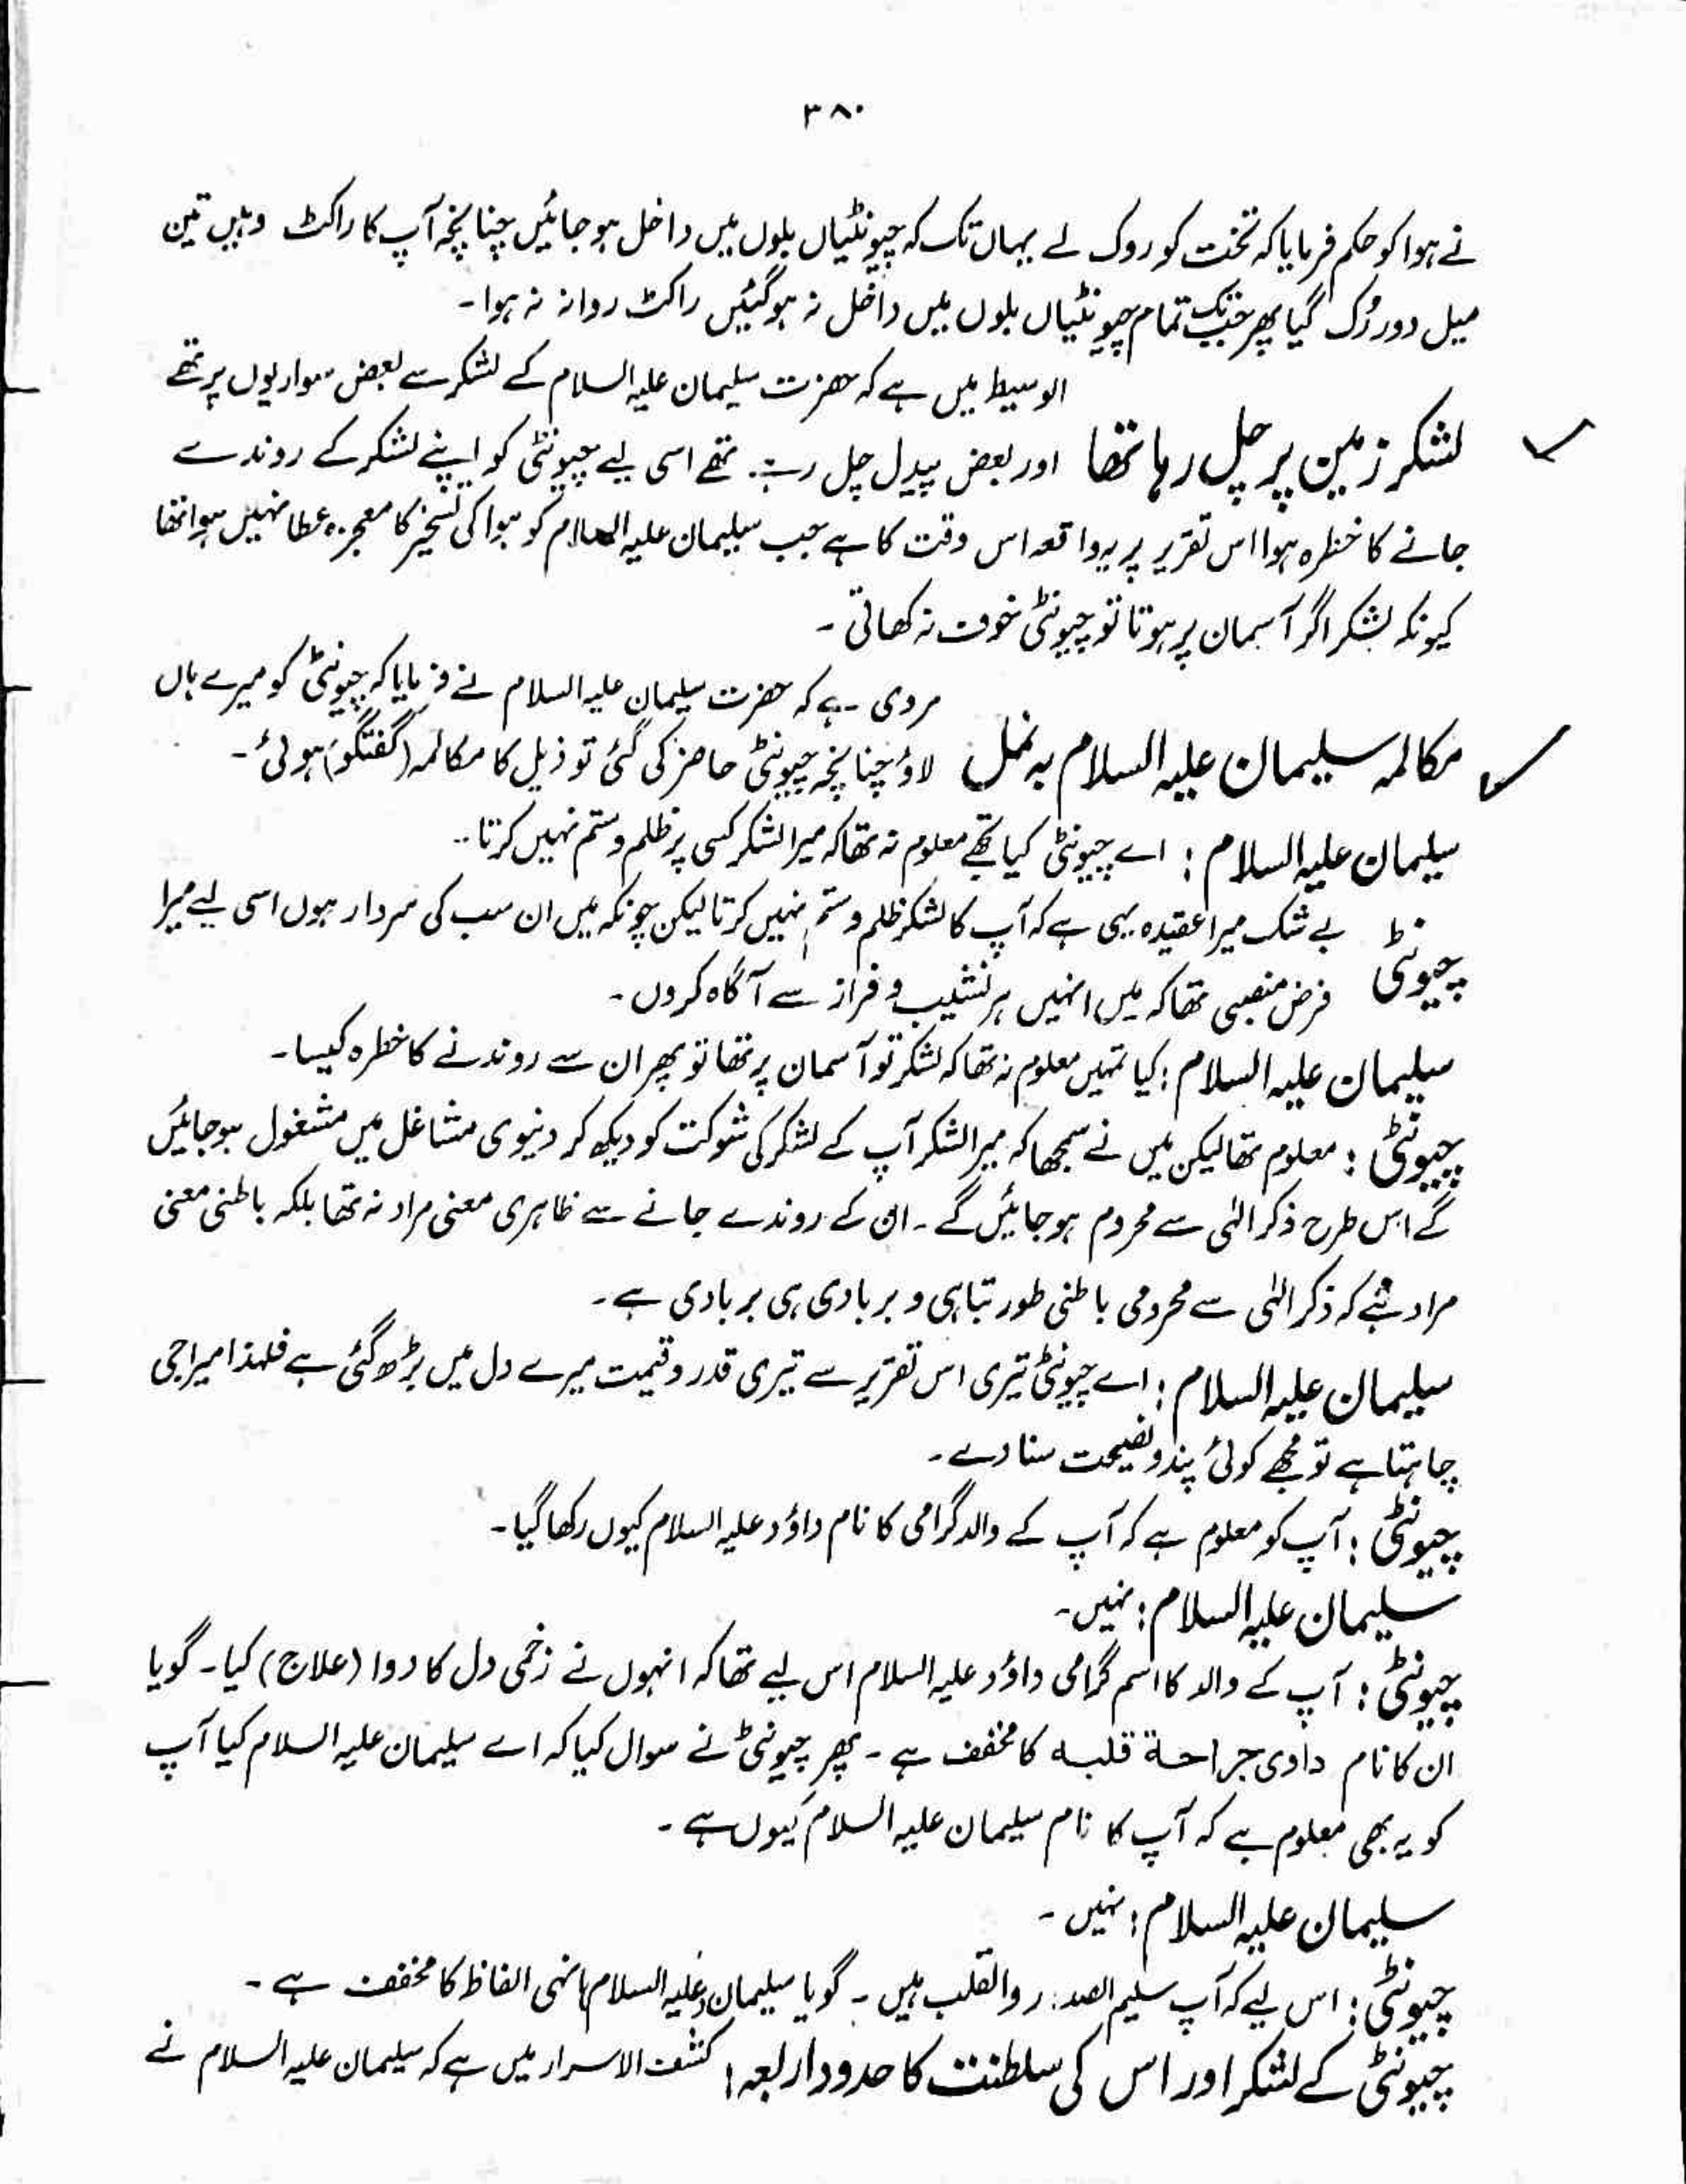 ۳۸۰
نے ہوا کو حکم فرمایا کہ تخت کو روک لے یہاں تک کہ چیونٹیاں بلوں میں داخل ہو جائیں چنانچہ آپ کا راکٹ وہیں تین
میل دور رُک گیا پھر جب تک تمام چیونٹیاں بلوں میں داخل نہ ہو گئیں راکٹ روانہ نہ ہوا۔
الوسیط میں ہے کہ حضرت سلیمان علیہ السلام کے لشکر سے بعض سواریوں پر تھے
لشکر زمین پر چل رہا تھا اور بعض پیدل چل رہے تھے اسی لیے چیونٹی کو اپنے لشکر کے روندے
جانے کا خطرہ ہوا اس تقریر پر یہ واقعہ اس وقت کا ہے جب سلیمان علیہ السلام کو ہوا کی تسخیر کا معجزہ عطا نہیں ہوا تھا
کیونکہ لشکر اگر آسمان پر ہوتا تو چیونٹی خوف نہ کھاتی۔
مروی ہے کہ حضرت سلیمان علیہ السلام نے فرمایا کہ چیونٹی کو میرے ہاں
مکالمہ سلیمان علیہ السلام بہ نمل لاؤ چنانچہ چیونٹی حاضر کی گئی تو ذیل کا مکالمہ (گفتگو) ہوئی۔
سلیمان علیہ السلام : اے چیونٹی کیا تجھے معلوم نہ تھا کہ میرا لشکر کسی پر ظلم و ستم نہیں کرتا۔
چیونٹی بے شک میرا عقیدہ یہی ہے کہ آپ کا لشکر ظلم و ستم نہیں کرتا لیکن چونکہ میں ان سب کی سردار ہوں اسی لیے میرا
فرض منصبی تھا کہ میں انہیں ہر نشیب و فراز سے آگاہ کروں۔
سلیمان علیہ السلام : کیا تمہیں معلوم نہ تھا کہ لشکر تو آسمان پر تھا تو پھر ان سے روندنے کا خطرہ کیسا۔
چیونٹی : معلوم تھا لیکن میں نے سمجھا کہ میرا لشکر آپ کے لشکر کی شوکت کو دیکھ کر دنیوی مشاغل میں مشغول ہو جائیں
گے اس طرح ذکر الٰہی سے محروم ہو جائیں گے۔ ان کے روندے جانے سے ظاہری معنی مراد نہ تھا بلکہ باطنی معنی
مراد ہے کہ ذکر الٰہی سے محرومی باطنی طور تباہی و بربادی ہی بربادی ہے۔
سلیمان علیہ السلام : اے چیونٹی تیری اس تقریر سے تیری قدر و قیمت میرے دل میں بڑھ گئی ہے فلہذا میرا جی
چاہتا ہے تو مجھے کوئی پند و نصیحت سنا دے۔
چیونٹی : آپ کو معلوم ہے کہ آپ کے والد گرامی کا نام داؤد علیہ السلام کیوں رکھا گیا۔
سلیمان علیہ السلام : نہیں۔
چیونٹی : آپ کے والد کا اسم گرامی داؤد علیہ السلام اس لیے تھا کہ انہوں نے زخمی دل کا دوا (علاج) کیا۔ گویا
ان کا نام داوی جراحة قلبه کا مخفف ہے۔ پھر چیونٹی نے سوال کیا کہ اے سلیمان علیہ السلام کیا آپ
کو یہ بھی معلوم ہے کہ آپ کا نام سلیمان علیہ السلام کیوں ہے۔
سلیمان علیہ السلام : نہیں۔
چیونٹی : اس لیے کہ آپ سلیم الصدر والقلب ہیں۔ گویا سلیمان (علیہ السلام) انہی الفاظ کا مخفف ہے۔
چیونٹی کے لشکر اور اس کی سلطنت کا حدود اربعہ : کشف الاسرار میں ہے کہ سلیمان علیہ السلام نے